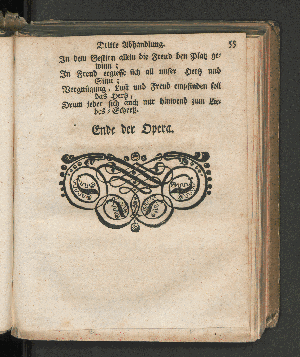 Dritte Abhandlung. 55
In dem Gestirn allein die Freud den Platz ge-
winn;
In Freud ergiesse sich all unser Hertz und
Sinn;
Vergnügung, Lust und Freud empfinden soll
das Hertz,
Drum jeder sich auch nur hinwend zum Lie-
bes-Schertz.
Ende der Opera.